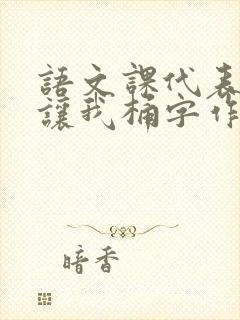 語文課代表
讓我桶字作
暗香